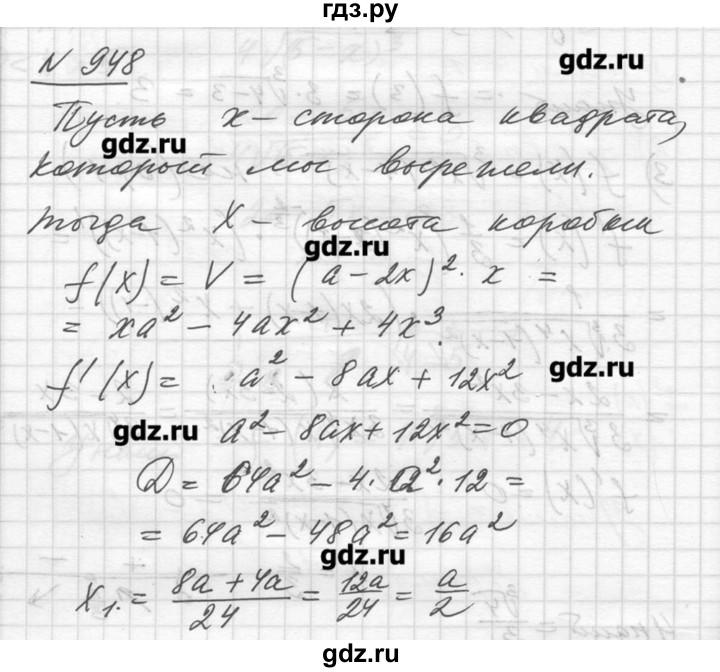 гдз.ру
N 948
gdz.ru
Пусть x – сторона квадрата,
gdz.ru
который мы вырежели.
тогда X – высота коробки
gdz.ru
f(x) = V = (a - 2x)²· x =
= xa² - 4ax² + 4x³.
f'(x) = a² - 8ax + 12x²
gdz.ru
gdz.ru a² - 8ax + 12x² = 0
D = 64a² - 4·a²·12 =
= 64a² - 48a² = 16a²
gdz.ru
x₁ = (8a + 4a)/24 = 12a/24 = a/2